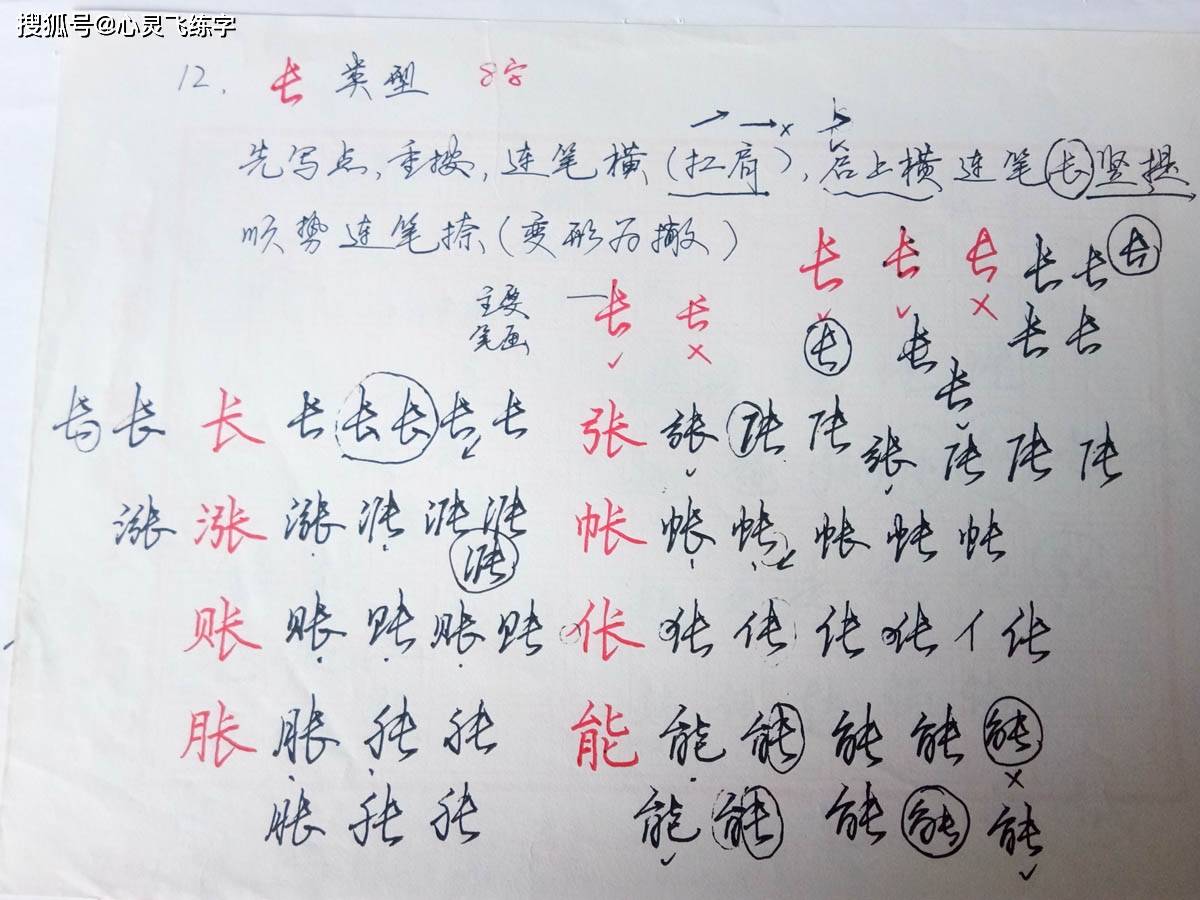 搜狐号@心灵飞练字
12. 长 类型 8字
先写点,重按,连笔横(扛肩),右上横连笔长竖提
顺势连笔捺(变形为撇)
长 长 长 长 长 长
主要 长 长 长 长 长 长
笔画
长
长 长 长 长 长 长 长 长 张 张 张 张 张 张 张 张
涨 涨 涨 涨 涨 涨 帐 帐 帐 帐 帐 帐
涨
账 账 账 账 账 伥 伥 伥 伥 伥 亻 伥
胀 胀 胀 胀 能 能 能 能 能 能
胀 胀 胀 能 能 能 能 能